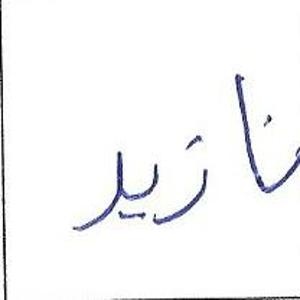 نازيد